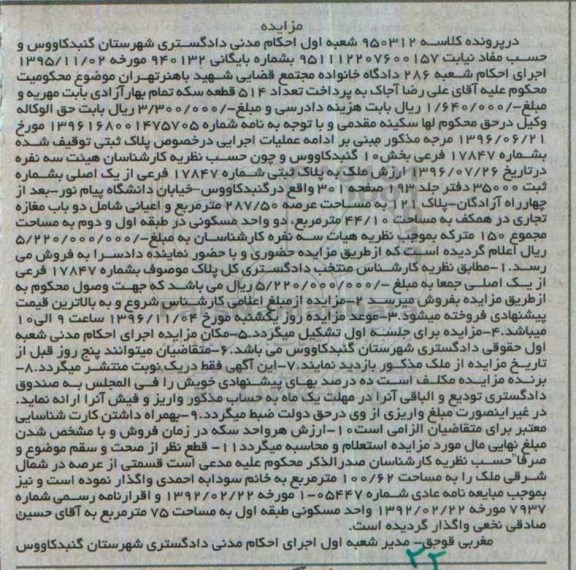 مزایده
درپرونده کلاسه ۹۵۰۳۱۲ شعبه اول احکام مدنی دادگستری شهرستان گنبدکاووس و
حسب مفاد نیابت ۹۵۱۱۱۲۲۰۷۶۰۰۱۵۷ بشماره بایگانی ۹۴۰۱۳۲ مورخه ۱۳۹۵/۱۱/۰۲
اجرای احکام شعبه ۲۸۶ دادگاه خانواده مجتمع قضایی شهید باهنرتهران موضوع محکومیت
محکوم علیه آقای علی رضا آجاک به پرداخت تعداد ۵۱۴ قطعه سکه تمام بهارآزادی بابت مهریه و
مبلغ-/۱/۶۴۰/۰۰۰ ریال بابت هزینه دادرسی و مبلغ-/۳/۳۰۰/۰۰۰ ریال بابت حق الوکاله
وکیل درحق محکوم لها سکینه مقدمی و با توجه به نامه شماره ۱۳۹۶۱۶۸۰۰۱۴۷۵۷۰۵ مورخ
۱۳۹۶/۰۶/۲۱ مرجه مذکور مبنی بر ادامه عملیات اجرایی درخصوص پلاک ثبتی توقیف شده
بشماره ۱۷۸۴۷ فرعی بخش۱۰ گنبدکاووس و چون حسب نظریه کارشناسان هیئت سه نفره
درتاریخ ۱۳۹۶/۰۷/۲۶ ارزش ملک به پلاک ثبتی شماره ۱۷۸۴۷ فرعی از یک اصلی بشماره
ثبت ۳۵۰۰۰ دفتر جلد ۱۹۳ صفحه ۳۰۱ واقع درگنبدکاووس-خیابان دانشگاه پیام نور-بعد از
چهارراه آزادگان-پلاک ۱۲۱ به مساحت عرصه ۲۸۷/۵۰ مترمربع و اعیانی شامل دو باب مغازه
تجاری در همکف به مساحت ۴۴/۱۰ مترمربع، دو واحد مسکونی در طبقه اول و دوم به مساحت
مجموع ۱۵۰ مترکه بموجب نظریه هیات سه نفره کارشناسان به مبلغ-/۵/۲۲۰/۰۰۰/۰۰۰
ریال اعلام گردیده است که ازطریق مزایده حضوری و با حضور نماینده دادسرا به فروش می
رسد.۱-مطابق نظریه کارشناس منتخب دادگستری کل پلاک موصوف بشماره ۱۷۸۴۷ فرعی
از یک اصلی جمعا به مبلغ -/۵/۲۲۰/۰۰۰/۰۰۰ ریال می باشد که جهت وصول محکوم به
ازطریق مزایده بفروش میرسد ۲-مزایده ازمبلغ اعلامی کارشناس شروع و به بالاترین قیمت
پیشنهادی فروخته میشود.۳-موعد مزایده روز یکشنبه مورخ ۱۳۹۶/۱۱/۰۴ ساعت ۹ الی۱۰
میباشد.۴-مزایده برای جلسه اول تشکیل میگردد.۵-مکان مزایده اجرای احکام مدنی شعبه
اول حقوقی دادگستری شهرستان گنبدکاووس می باشد.۶-متقاضیان میتوانند پنج روز قبل از
تاریخ مزایده از ملک مذکور بازدید نمایند.۷-این آگهی فقط دریک نوبت منتشر میگردد.۸-
برنده مزایده مکلف است ده درصد بهای پیشنهادی خویش را فی المجلس به صندوق
دادگستری تودیع و الباقی آنرا در مهلت یک ماه به حساب مذکور واریز و فیش آنرا ارائه نماید.
در غیر اینصورت مبلغ واریزی از وی درحق دولت ضبط میگردد.۹-بهمراه داشتن کارت شناسایی
معتبر برای متقاضیان الزامی است۱۰-ارزش هرواحد سکه در زمان فروش و با مشخص شدن
مبلغ نهایی مال مورد مزایده استعلام و محاسبه میگردد۱۱- قطع نظر از صحت و سقم موضوع و
صرفا"حسب نظریه کارشناسان صدرالذکر محکوم علیه مدعی است قسمتی از عرصه در شمال
شرقی ملک را به مساحت ۱۰۰/۶۲ مترمربع به خانم سودابه احمدی واگذار نموده است و نیز
بموجب مبایعه نامه عادی شماره ۰۵۴۴۷-۱ مورخه ۱۳۹۲/۰۲/۲۲ و اقرارنامه رسمی شماره
۷۹۳۷ مورخه ۱۳۹۲/۰۲/۲۲ واحد مسکونی طبقه اول به مساحت ۷۵ مترمربع به آقای حسین
صادقی نخعی واگذار گردیده است.
مغربی قوجق- مدیر شعبه اول اجرای احکام مدنی دادگستری شهرستان گنبدکاووس
۲۲